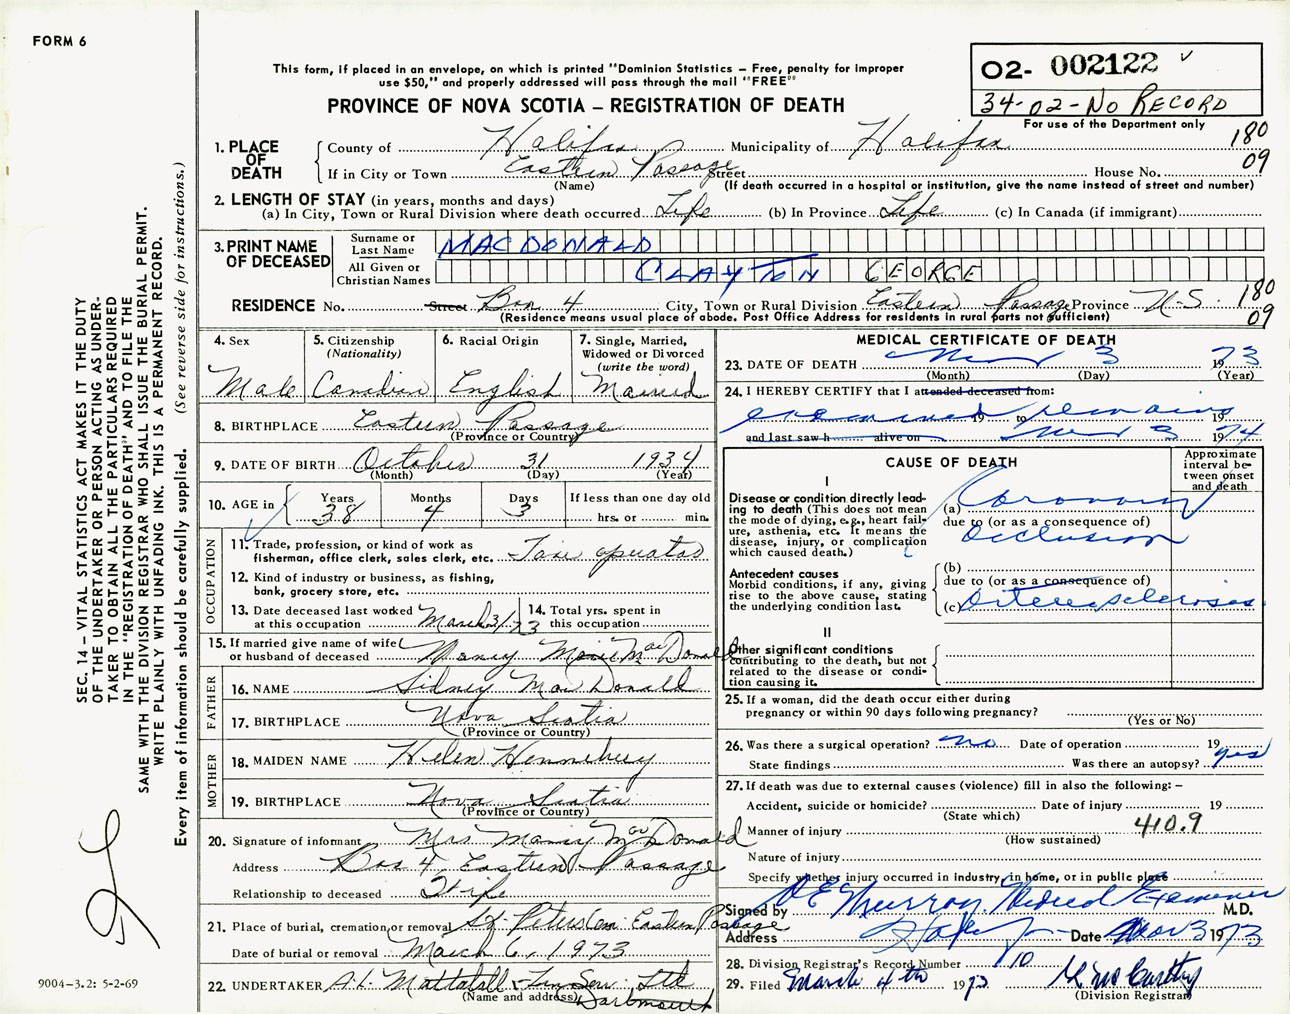 FORM 6
This form, if placed in an envelope, on which is printed "Dominion Statistics – Free, penalty for improper
use $50," and properly addressed will pass through the mail "FREE"
PROVINCE OF NOVA SCOTIA – REGISTRATION OF DEATH
02- 002122 ✓
34-02-No RECORD
For use of the Department only
180
09
1. PLACE OF DEATH
County of Halifax Municipality of Halifax
If in City or Town Eastern Passage Street House No.
(Name) (If death occurred in a hospital or institution, give the name instead of street and number)
2. LENGTH OF STAY (in years, months and days)
(a) In City, Town or Rural Division where death occurred Life (b) In Province Life (c) In Canada (if immigrant)
3. PRINT NAME OF DECEASED
Surname or Last Name MACDONALD
All Given or Christian Names CLAYTON GEORGE
RESIDENCE No. Street Box 4 City, Town or Rural Division Eastern Passage Province N-S. 180
09
(Residence means usual place of abode. Post Office Address for residents in rural parts not sufficient)
4. Sex Male
5. Citizenship (Nationality) Canadian
6. Racial Origin English
7. Single, Married, Widowed or Divorced (write the word) Married
8. BIRTHPLACE Eastern Passage
(Province or Country)
9. DATE OF BIRTH October 31 1934
(Month) (Day) (Year)
10. AGE in Years 38 Months 4 Days 3 If less than one day old hrs. or min.
OCCUPATION
11. Trade, profession, or kind of work as
fisherman, office clerk, sales clerk, etc. Taxi operator
12. Kind of industry or business, as fishing,
bank, grocery store, etc.
13. Date deceased last worked at this occupation March 3/73
14. Total yrs. spent in this occupation
15. If married give name of wife
or husband of deceased Nancy Marie MacDonald
FATHER
16. NAME Sidney MacDonald
17. BIRTHPLACE Nova Scotia
(Province or Country)
MOTHER
18. MAIDEN NAME Helen Hennebury
19. BIRTHPLACE Nova Scotia
(Province or Country)
20. Signature of informant Mrs Nancy MacDonald
Address Box 4, Eastern Passage
Relationship to deceased Wife
21. Place of burial, cremation or removal St. Peters Cem. Eastern Passage
Date of burial or removal March 6, 1973
22. UNDERTAKER A.L. Mattatall Fun Serv. Ltd
(Name and address) Dartmouth
MEDICAL CERTIFICATE OF DEATH
23. DATE OF DEATH Mar 3 1973
(Month) (Day) (Year)
24. I HEREBY CERTIFY that I attended deceased from:
examined 19 to remains 19
and last saw h alive on Mar 3 1974
CAUSE OF DEATH
Approximate interval between onset and death
I
Disease or condition directly leading to death (This does not mean
the mode of dying, e.g., heart failure, asthenia, etc. It means the
disease, injury, or complication which caused death.)
(a) Coronary
due to (or as a consequence of)
Occlusion
Antecedent causes
Morbid conditions, if any, giving
rise to the above cause, stating
the underlying condition last.
(b)
due to (or as a consequence of)
(c) Arteriosclerosis
II
Other significant conditions
contributing to the death, but not
related to the disease or condition causing it.
25. If a woman, did the death occur either during
pregnancy or within 90 days following pregnancy?
(Yes or No)
26. Was there a surgical operation? no Date of operation 19
State findings Was there an autopsy? yes
27. If death was due to external causes (violence) fill in also the following: –
Accident, suicide or homicide? Date of injury 19
(State which)
Manner of injury 410.9
(How sustained)
Nature of injury
Specify whether injury occurred in industry, in home, or in public place
Signed by D E Murray Medical Examiner M.D.
Address Date Mar 3 1973
28. Division Registrar's Record Number 110
29. Filed March 4th 1973 McCarthy
(Division Registrar)
SEC. 14 – VITAL STATISTICS ACT MAKES IT THE DUTY
OF THE UNDERTAKER OR PERSON ACTING AS UNDERTAKER TO OBTAIN ALL THE PARTICULARS REQUIRED
IN THE "REGISTRATION OF DEATH" AND TO FILE THE
SAME WITH THE DIVISION REGISTRAR WHO SHALL ISSUE THE BURIAL PERMIT.
WRITE PLAINLY WITH UNFADING INK. THIS IS A PERMANENT RECORD.
Every item of information should be carefully supplied. (See reverse side for instructions.)
9004–3.2: 5-2-69